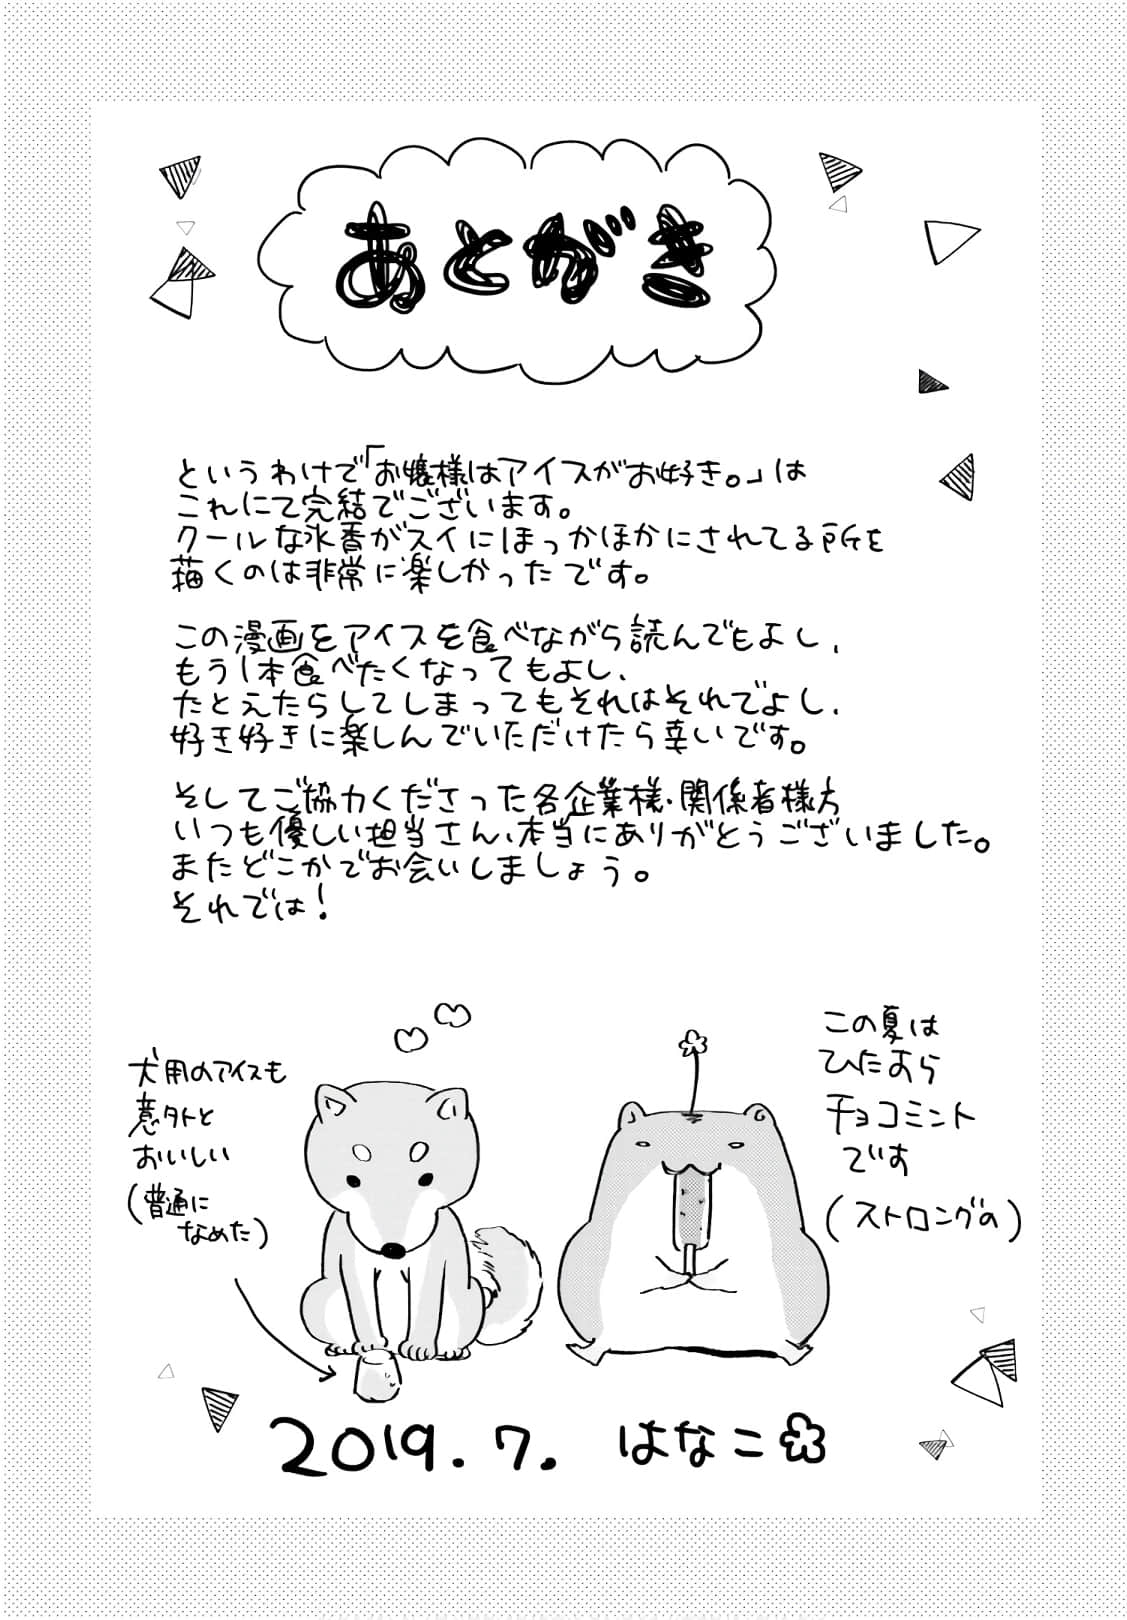 あとがき
というわけで「お嬢様はアイスがお好き。」は
これにて完結でございます。
クールな氷香がスイにほっかほかにされてる所を
描くのは非常に楽しかったです。
この漫画をアイスを食べながら読んでもよし、
もう1本食べたくなってもよし、
たとえたらしてしまってもそれはそれでよし、
好き好きに楽しんでいただけたら幸いです。
そしてご協力くださった各企業様・関係者様方
いつも優しい担当さん、本当にありがとうございました。
またどこかでお会いしましょう。
それでは!
犬用のアイスも
意外と
おいしい
(普通に
なめた)
この夏は
ひたすら
チョコミント
です
(ストロングの)
2019.7. はなこ